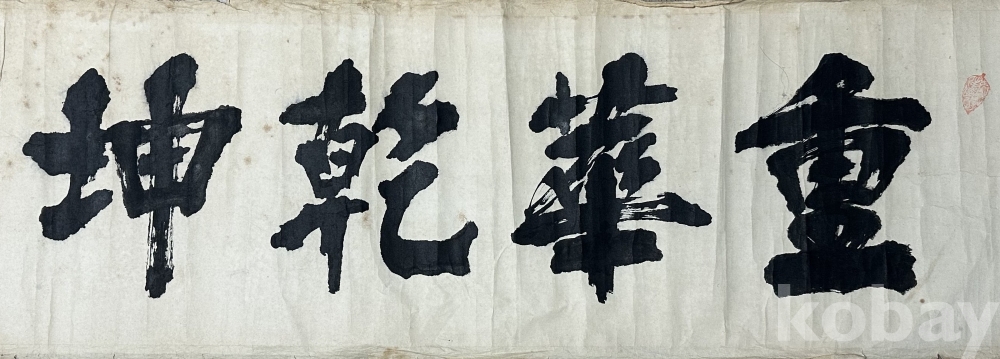 重華乾坤
kobay